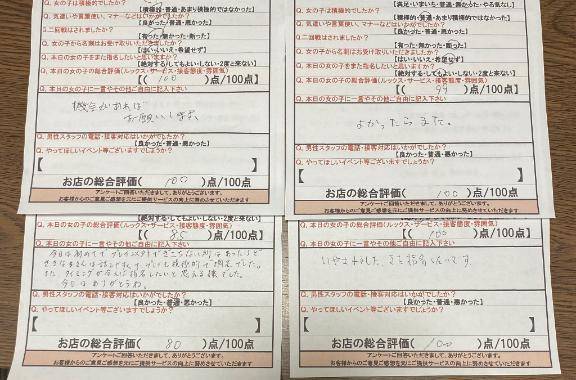 Q. 女の子は積極的でしたか?
【積極的・普通・あまり積極的ではなかった】
Q. 気遣いや言葉使い、マナーなどはいかがでしたか?
【良かった・普通・悪かった】
Q. 二回戦はされましたか?
【有った・無かった・断った】
Q. 女の子から名刺はお受け取りいただきましたか?
【はい・いいえ・希望せず】
Q. 本日の女の子をまた指名したいと思いますか?
【絶対する・してもよい・しない・2度と来ない】
Q. 本日の女の子の総合評価(ルックス・サービス・接客態度・雰囲気)
【( 100 )点/100点】
Q. 本日の女の子に一言やその他ご自由に記入下さい
機会があれば
お願いします。
Q. 男性スタッフの電話・接客対応はいかがでしたか?
【良かった・普通・悪かった】
Q. やってほしいイベント等ございますでしょうか?
【 】
お店の総合評価( 100 )点/100点
アンケートご回答いただきまして、ありがとうございます。
お客様からのご意見ご感想を元にご提供サービスの向上に努めさせていただきます
Q. 女の子は積極的でしたか?
【積極的・普通・あまり積極的ではなかった】
Q. 気遣いや言葉使い、マナーなどはいかがでしたか?
【良かった・普通・悪かった】
Q. 二回戦はされましたか?
【有った・無かった・断った】
Q. 女の子から名刺はお受け取りいただきましたか?
【はい・いいえ・希望せず】
Q. 本日の女の子をまた指名したいと思いますか?
【絶対する・してもよい・しない・2度と来ない】
Q. 本日の女の子の総合評価(ルックス・サービス・接客態度・雰囲気)
【( 99 )点/100点】
Q. 本日の女の子に一言やその他ご自由に記入下さい
よかったらまた。
Q. 男性スタッフの電話・接客対応はいかがでしたか?
【良かった・普通・悪かった】
Q. やってほしいイベント等ございますでしょうか?
【 】
お店の総合評価( 100 )点/100点
アンケートご回答いただきまして、ありがとうございます。
お客様からのご意見ご感想を元にご提供サービスの向上に努めさせていただきます
【絶対する・してもよい・しない・2度と来ない】
Q. 本日の女の子の総合評価(ルックス・サービス・接客態度・雰囲気)
【( 85 )点/100点】
Q. 本日の女の子に一言やその他ご自由に記入下さい
今日は初めてで
また、タイミングが合えば指名したいと思える様でした。
今日はありがとうね。
Q. 男性スタッフの電話・接客対応はいかがでしたか?
【良かった・普通・悪かった】
Q. やってほしいイベント等ございますでしょうか?
【 】
お店の総合評価( 80 )点/100点
アンケートご回答いただきまして、ありがとうございます。
お客様からのご意見ご感想を元にご提供サービスの向上に努めさせていただきます
Q. 本日の女の子の総合評価(ルックス・サービス・接客態度・雰囲気)
【( 100 )点/100点】
Q. 本日の女の子に一言やその他ご自由に記入下さい
いやされました。
Q. 男性スタッフの電話・接客対応はいかがでしたか?
【良かった・普通・悪かった】
Q. やってほしいイベント等ございますでしょうか?
【 】
お店の総合評価( 100 )点/100点
アンケートご回答いただきまして、ありがとうございます。
お客様からのご意見ご感想を元にご提供サービスの向上に努めさせていただきます